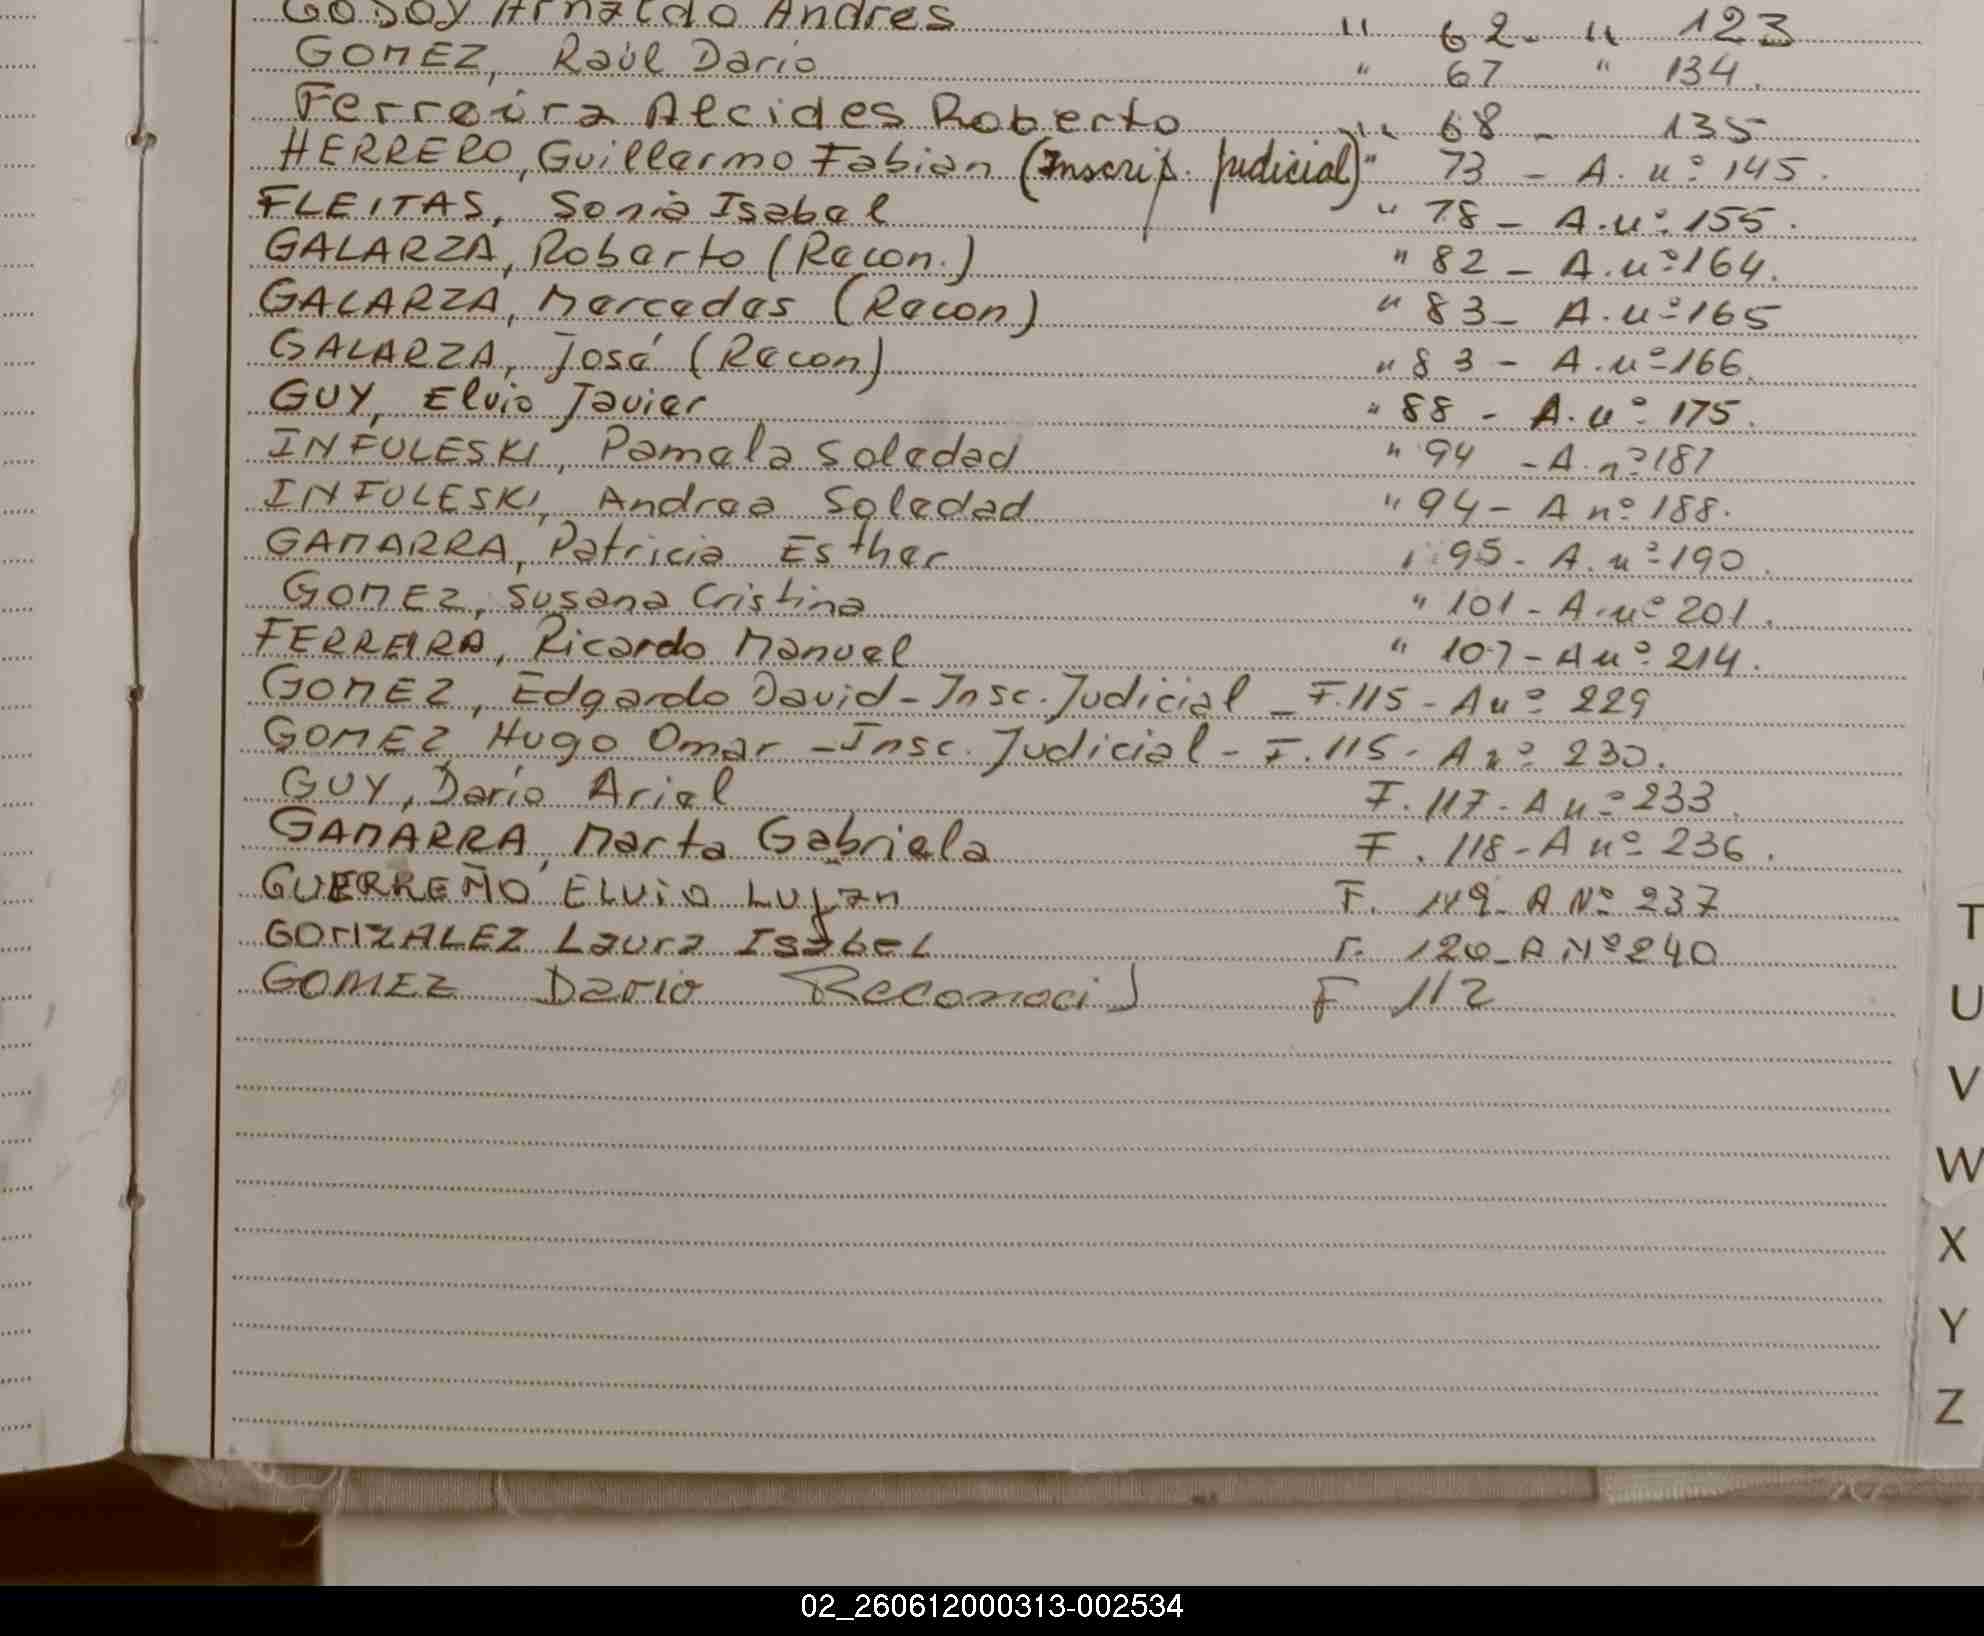 GODOY Arnaldo Andres " 62 - " 123
GOMEZ, Raúl Dario " 67 " 134.
Ferreira Alcides Roberto " 68 - 135
HERRERO, Guillermo Fabian (Inscrip. Judicial) " 73 - A. nº 145.
FLEITAS, Sonia Isabel " 78 - A. nº 155.
GALARZA, Roberto (Recon.) " 82 - A. nº 164.
GALARZA, Mercedes (Recon) " 83 - A. nº 165
GALARZA, José (Recon) " 83 - A. nº 166.
GUY, Elvio Javier " 88 - A. nº 175.
INFULESKI, Pamela Soledad " 94 - A. nº 187
INFULESKI, Andrea Soledad " 94 - A nº 188.
GAMARRA, Patricia Esther " 95 - A. nº 190.
GOMEZ, Susana Cristina " 101 - A. nº 201.
FERREIRA, Ricardo Manuel " 107 - A nº 214.
GOMEZ, Edgardo David - Insc. Judicial - F. 115 - A nº 229
GOMEZ, Hugo Omar - Insc. Judicial - F. 115 - A nº 230.
GUY, Darío Ariel F. 117 - A nº 233.
GAMARRA, Marta Gabriela F. 118 - A nº 236.
GUERREÑO ELViO LUján F. 119 - A Nº 237
GONZALEZ Laura IsabeL F. 120 - A Nº 240
GOMEZ Dario F 112
T
U
V
W
X
Y
Z
02_260612000313-002534